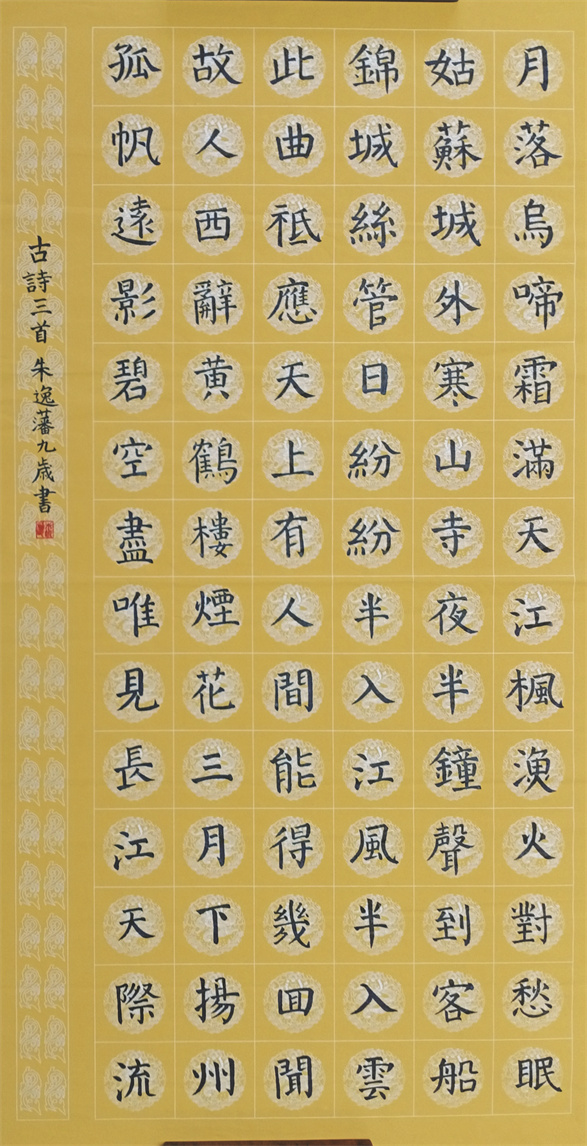 月落烏啼霜滿天江楓漁火對愁眠
姑蘇城外寒山寺夜半鐘聲到客船
錦城絲管日紛紛半入江風半入雲
此曲祗應天上有人間能得幾囬聞
故人西辭黃鶴樓煙花三月下揚州
孤帆遠影碧空盡唯見長江天際流
古詩三首 朱逸藩九歲書